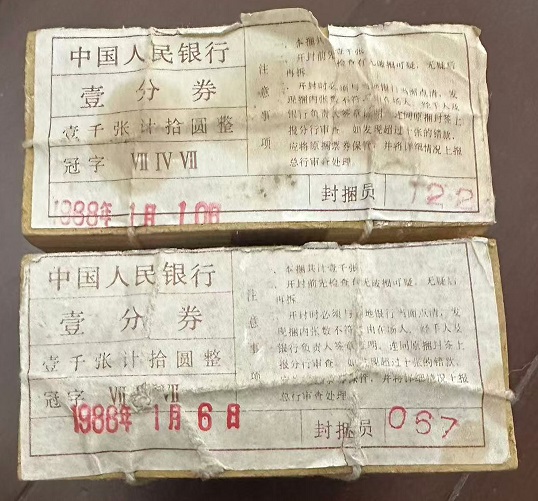 中国人民银行
壹分券
壹千张计拾圆整
冠字 Ⅶ Ⅳ Ⅶ
1988年 1月
注意事项
一、本捆共
二、开封前先
再拆。
发
现捆内张数不符
银行负责人签章
连同原捆封签上
报分行审查。如发现超过十张的错款,
应将原捆票券保管,并将详细情况上报
总行审查处理。
封捆员 122
中国人民银行
壹分券
壹千张计拾圆整
冠字 Ⅶ Ⅶ
1988年 1月 6日
注意事项
本捆共计壹千张
开封前先检查有无破捆可疑,无疑后
再拆。
开封时必须与当地银行当面点清,发
现捆内张数不符,由在场人、经手人及
银行负责人签章证明,连同原捆封签上
报分行审查。如发现超过十张的错款,
并将详细情况上报
总行审查处理。
封捆员 067